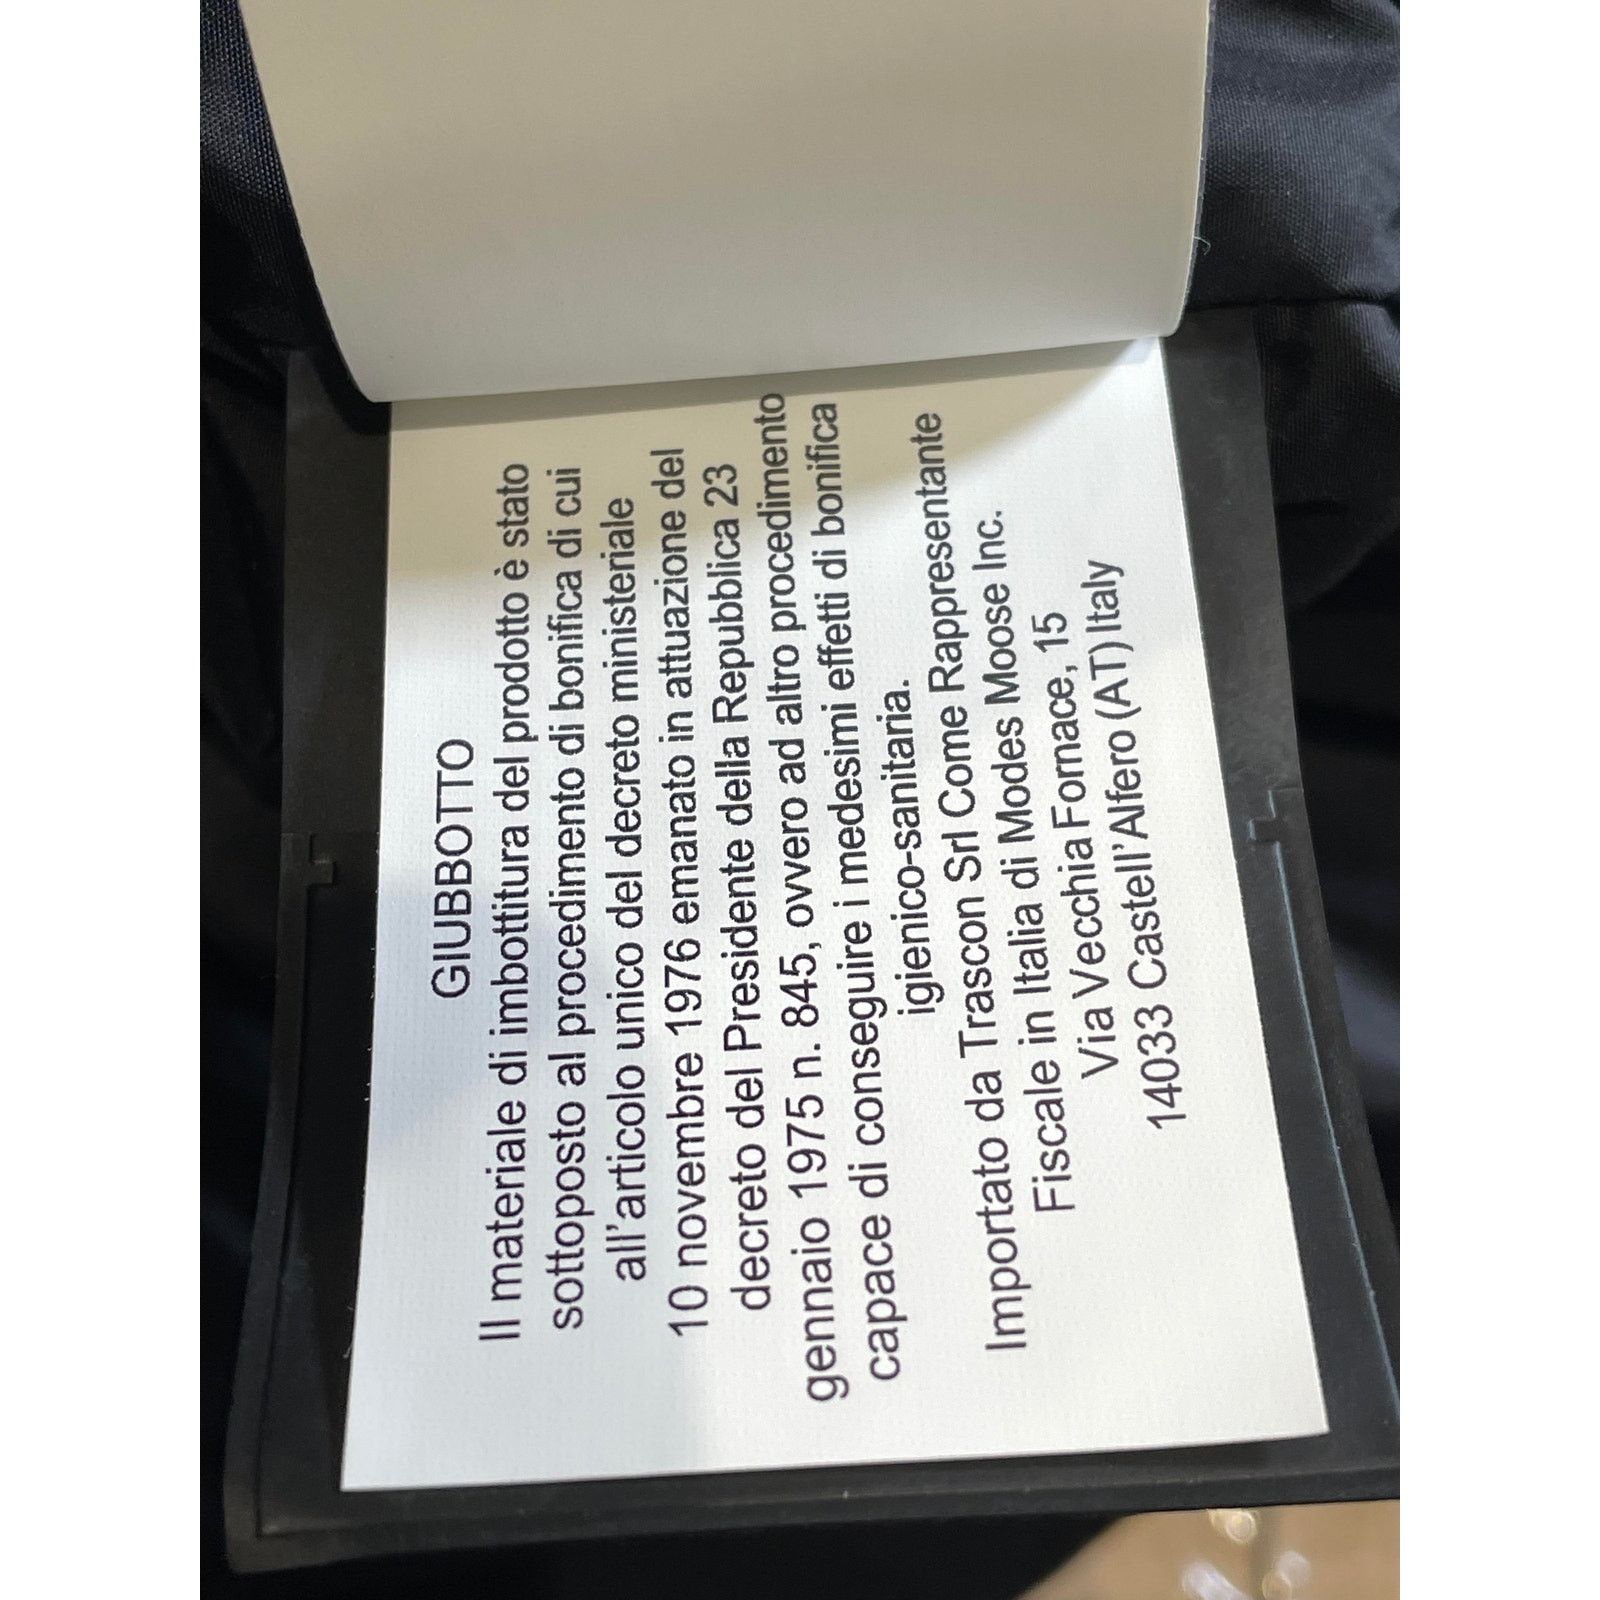 GIUBBOTTO
Il materiale di imbottitura del prodotto è stato
sottoposto al procedimento di bonifica di cui
all'articolo unico del decreto ministeriale
10 novembre 1976 emanato in attuazione del
decreto del Presidente della Repubblica 23
gennaio 1975 n. 845, ovvero ad altro procedimento
capace di conseguire i medesimi effetti di bonifica
igienico-sanitaria.
Importato da Trascon Srl Come Rappresentante
Fiscale in Italia di Modes Moose Inc.
Via Vecchia Fornace, 15
14033 Castell'Alfero (AT) Italy